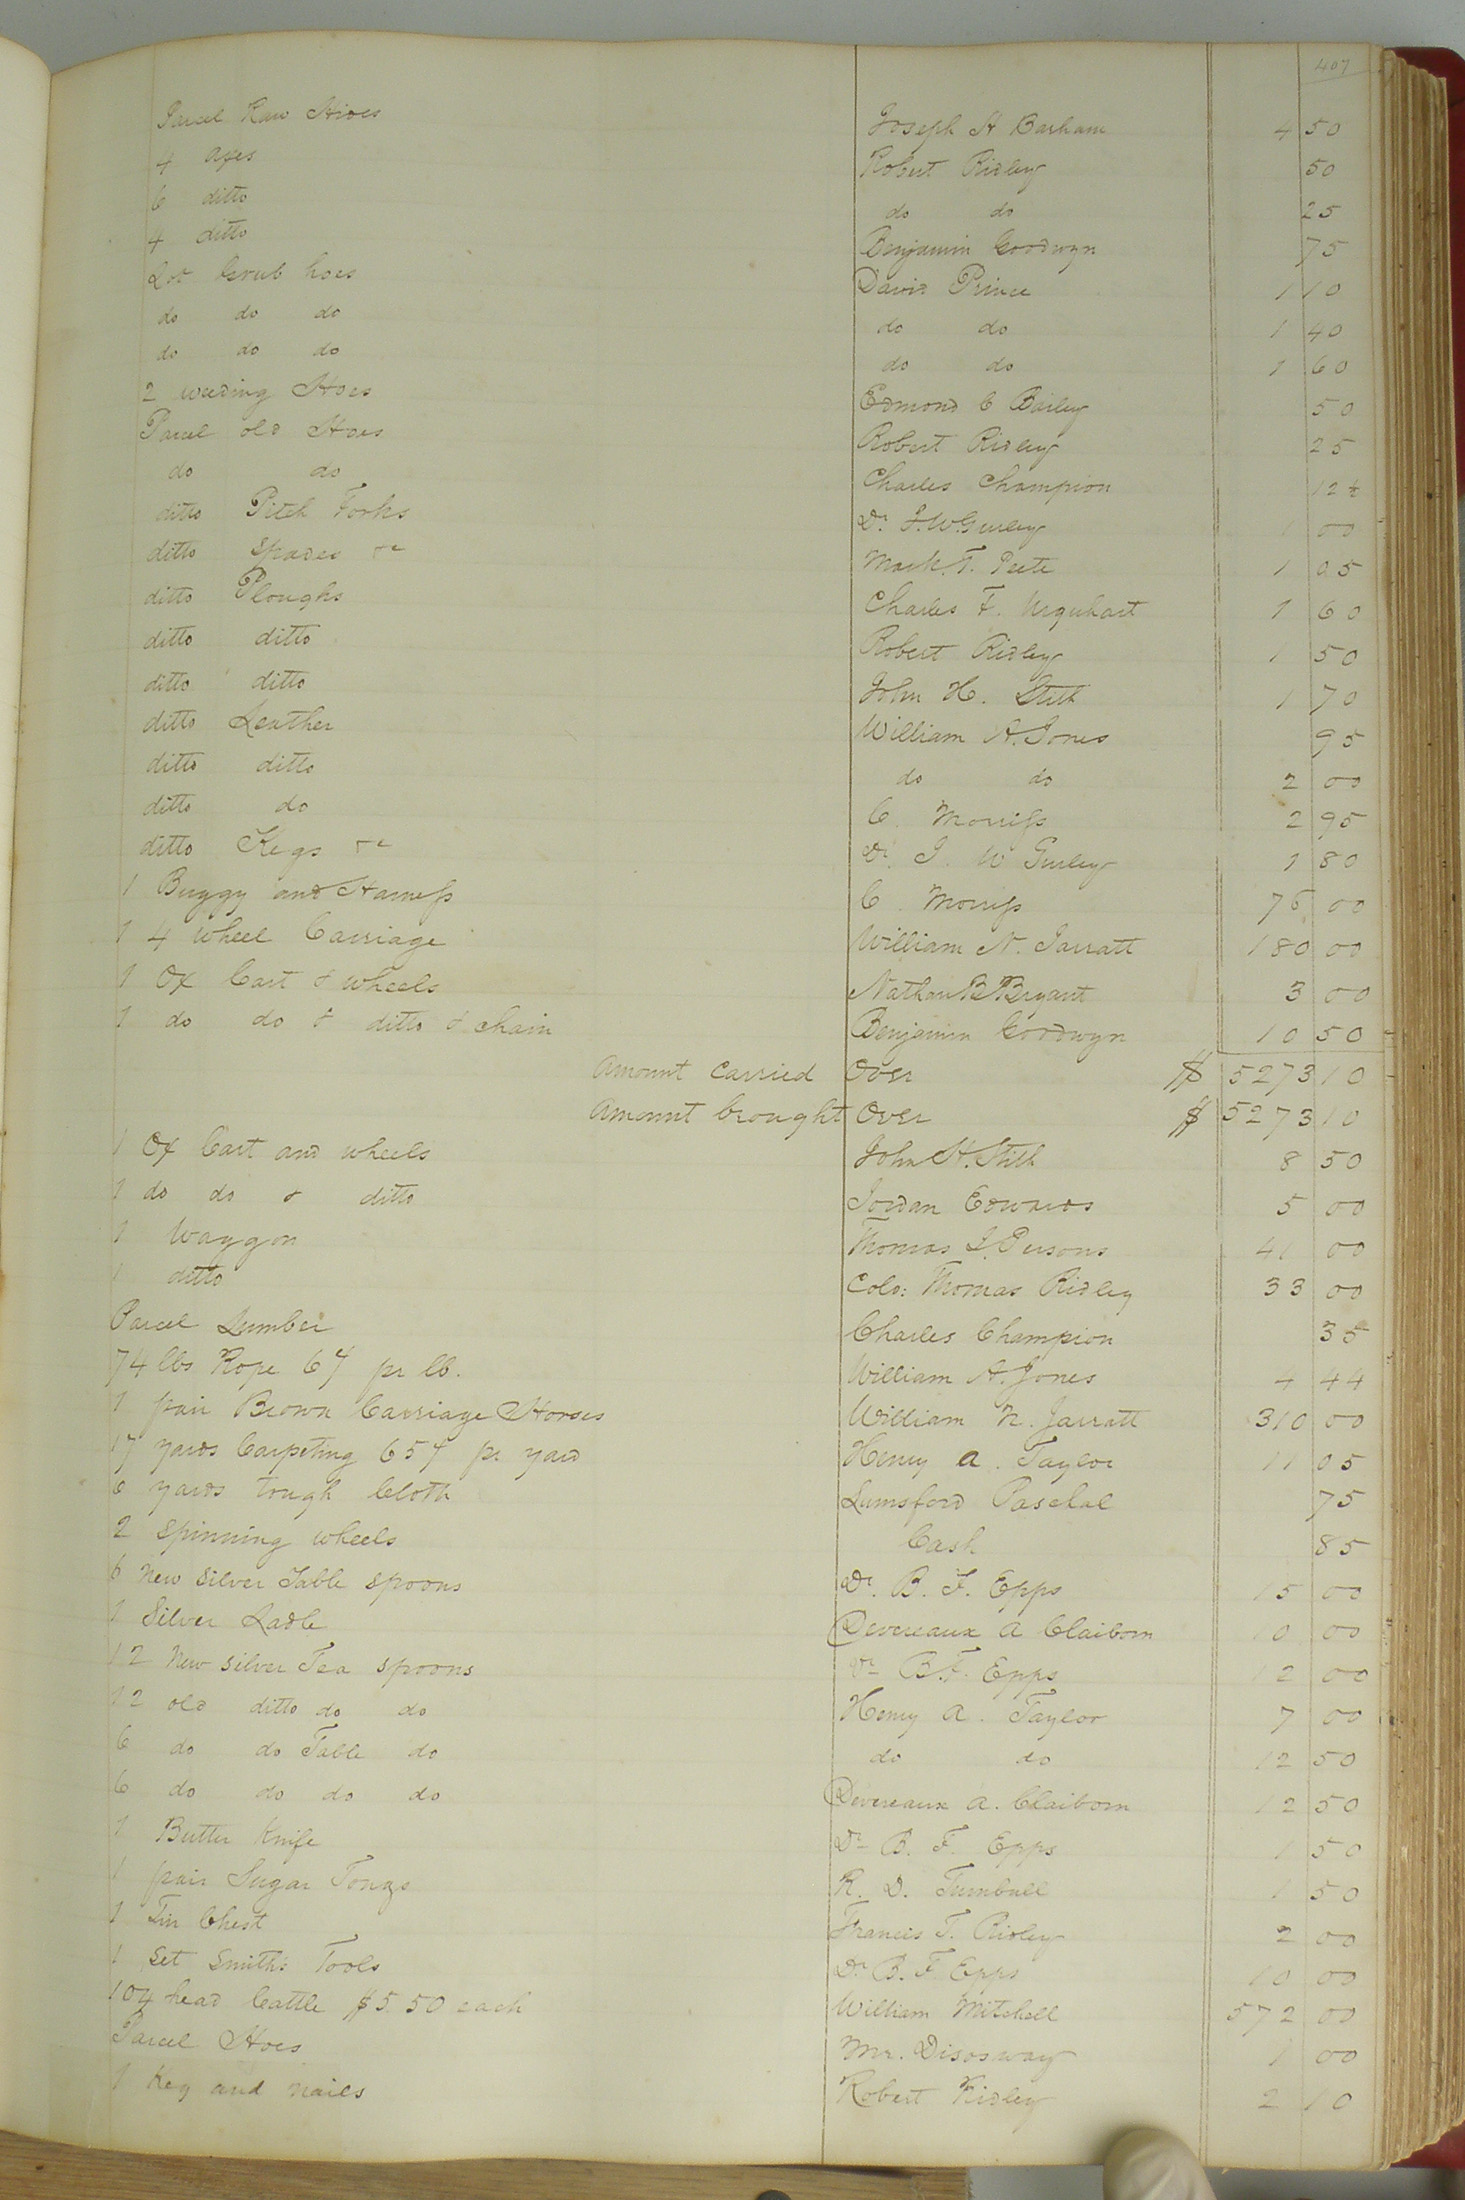 407
Parcel Raw Hides Joseph H Barham 4 50
4 axes Robert Ridley 50
6 ditto do do 25
4 ditto Benjamin Goodwyn 75
Lot Grub hoes David Prince 1 10
do do do do do 1 40
do do do do do 1 60
2 weeding Hoes Edmond C Bailey 50
Parcel old Hoes Robert Ridley 25
do do Charles Champion 12½
ditto Pitch Forks Dr. J. W. Gurley 1 00
ditto Spades &c Mark. T. Peete 1 05
ditto Ploughs Charles F. Urquhart 1 60
ditto ditto Robert Ridley 1 50
ditto ditto John H. Stith 1 70
ditto Leather William A. Jones 95
ditto ditto do do 2 00
ditto do C. Morriss 2 95
ditto Kegs &c Dr. J. W Gurley 1 80
1 Buggy and Harness C. Morriss 76 00
1 4 wheel Carriage William N. Jarratt 180 00
1 Ox Cart & wheels Nathan B Bryant 3 00
1 do do & ditto & chain Benjamin Goodwyn 10 50
Amount Carried Over $ 5273 10
Amount brought Over $ 5273 10
1 Ox Cart and wheels John H. Stith 8 50
1 do do & ditto Jordan Edwards 5 00
1 Waggon Thomas L. Persons 41 00
1 ditto Colo: Thomas Ridley 33 00
Parcel Lumber Charles Champion 35
74 lbs Rope 6¢ pr lb. William A. Jones 4 44
1 pair Brown Carriage Horses William N. Jarratt 310 00
17 yards Carpeting 65¢ pr yard Henry A. Taylor 11 05
6 yards tough Cloth Lumsford Paschal 75
2 Spinning wheels Cash 85
6 New Silver Table spoons Dr. B. F. Epps 15 00
1 Silver Ladle Devereaux A Claiborn 10 00
12 New silver Tea spoons Dr B. F. Epps 12 00
12 old ditto do do Henry A. Taylor 7 00
6 do do Table do do do 12 50
6 do do do do Devereaux A. Claiborn 12 50
1 Butter Knife Dr B. F. Epps 1 50
1 pair Sugar Tongs R. D. Turnbull 1 50
1 Tin Chest Francis T. Ridley 2 00
1 Set Smith's Tools Dr B. F. Epps 10 00
104 head Cattle $5.50 each William Mitchell 572 00
Parcel Hoes Mr. Disosway 1 00
1 Keg and nails Robert Ridley 2 10